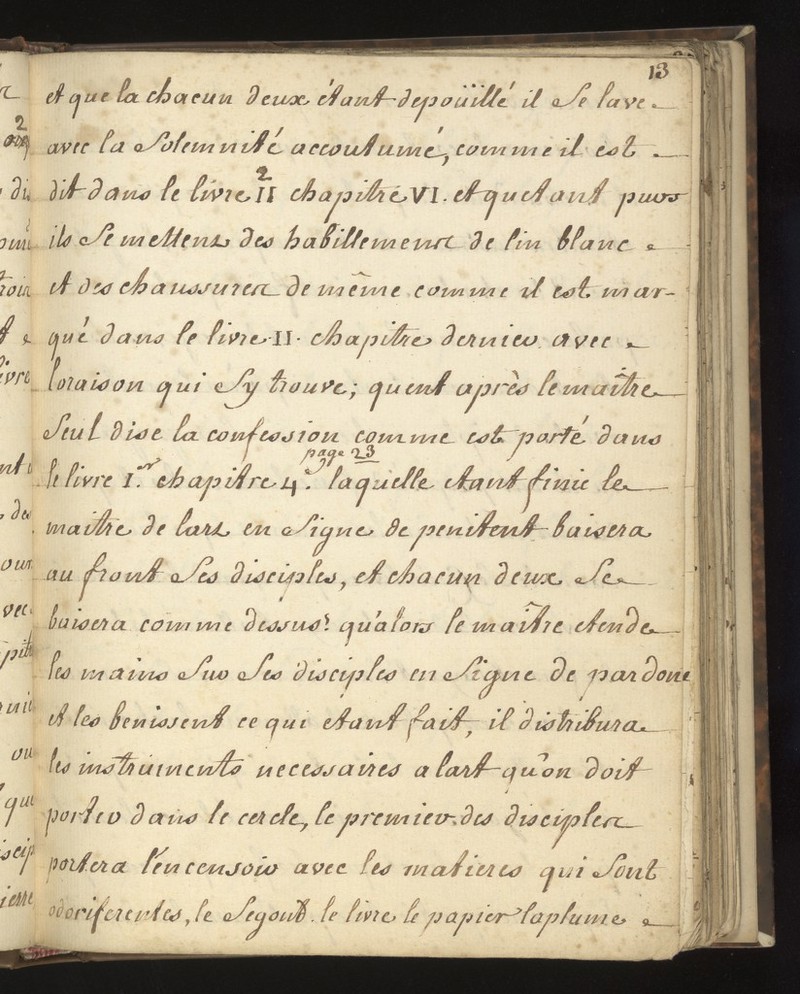 13
et que la chacun deux étant depoüillé il se lave
avec la Solemnité accoutumé, comme il est
2
dit dans le livre II chapitre VI. et quetant purs
ils se mettens des habillemens de lin blanc
et des chaussures de même comme il est mar-
qué dans le livre II. chapitre dernier avec
loraison qui sy trouve; quent après le maître
Seul dise la confession comme est porté dans
page 23
le livre I.er chapitre 4.e laquelle etant finie le
maitre de lart en signe de penitent baisera
au front ses disciples, et chacun deux se
baisera comme dessus: qu'alors le maître etende
les mains sur ses disciples en signe de pardone
et les benissent ce qui etant fait, il distribura
les instruments necessaires a lart qu'on doit
porter dans le cercle, le premier des disciples
portera l'encensoir avec les matieres qui sont
odoriferentes, le segond le livre le papier la plume